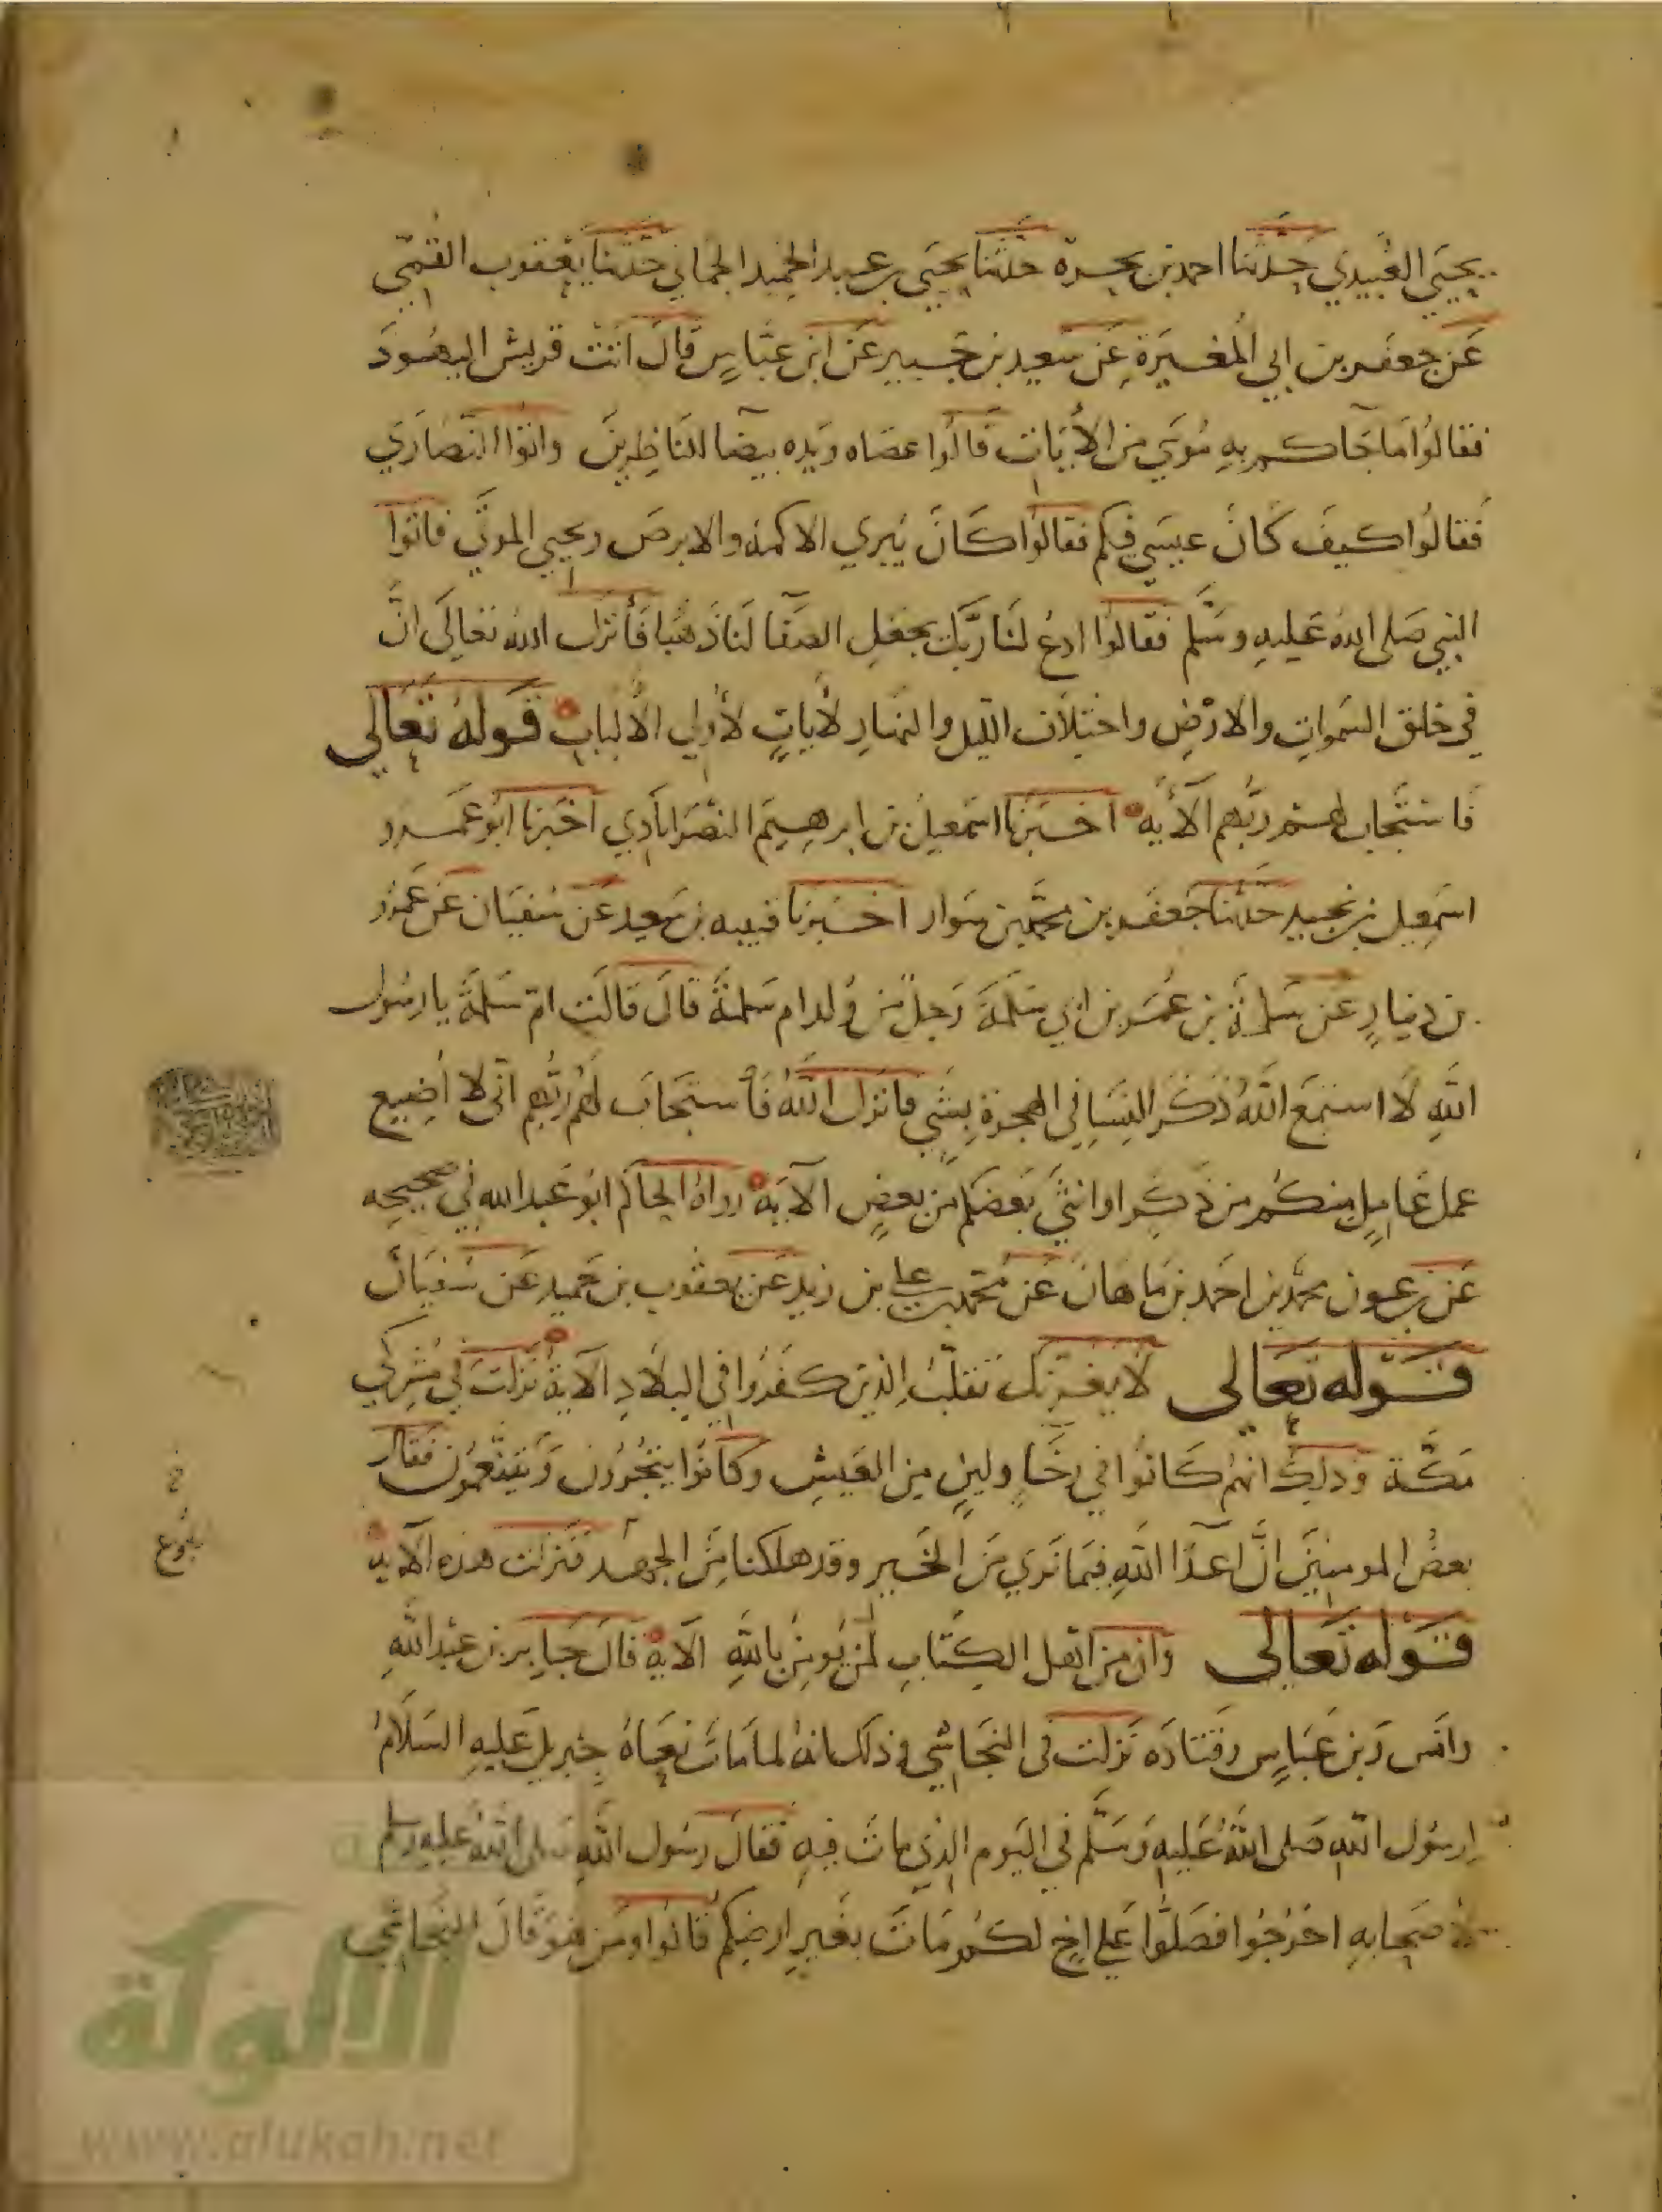 يحيى العبيدي حدثنا احمد بن بحدة حدثنا يحيى بن عبد الحميد الحماني حدثنا يعقوب القمي
عن جعفر بن ابي المغيرة عن سعيد بن جبير عن ابن عباس قال اتت قريش اليهود
فقالوا ما جاكم به موسى من الآيات قالوا عصاه ويده بيضا للناظرين واتوا النصارى
فقالوا كيف كان عيسى فيكم فقالوا كان يبرى الاكمه والابرص ويحيى الموتى فاتوا
النبي صلى الله عليه وسلم فقالوا ادع لنا ربك يجعل الصفا لنا ذهبا فأنزل الله تعالى ان
في خلق السموات والارض واختلاف الليل والنهار لآيات لأولي الألباب قوله تعالى
فاستجاب لهم ربهم الآية اخبرنا اسمعيل بن ابرهيم النصراباذي اخبرنا ابو عمرو
اسمعيل بن نجيد حدثنا جعفر بن محمد بن سوار اخبرنا قتيبه بن سعيد عن سفيان عن عمرو
بن دينار عن سلمة بن عمر بن ابي سلمة رجل من ولد ام سلمة قال قالت ام سلمة يا رسول
الله لا اسمع الله ذكر النسا في الهجرة بشي فانزل الله فأستجاب لهم ربهم اني لا اضيع
عمل عامل منكم من ذكر او انثى بعضكم من بعض الآية رواه الحاكم ابو عبد الله في صحيحه
عن بن عون محمد بن احمد بن ماهان عن محمد بن علي بن زيد عن يعقوب بن حميد عن سفيان
قوله تعالى لا يغرنك تقلب الذين كفروا في البلاد الآية نزلت في مشركي
مكة وذلك انهم كانوا في رخا ولين من العيش وكانوا يتجرون ويتنعمون فقال
بعض المومنين ان اعدا الله فيما نرى من الخير وقد هلكنا من الجهد فنزلت هذه الآية
قوله تعالى وان من اهل الكتاب لمن يومن بالله الآية قال جابر بن عبد الله
وانس وبن عباس وقتاده نزلت في النجاشي وذلك انه لما مات نعاه جبريل عليه السلام
لرسول الله صلى الله عليه وسلم في اليوم الذي مات فيه فقال رسول الله صلى الله عليه وسلم
لأصحابه اخرجوا فصلوا على اخ لكم مات بغير ارضكم قالوا ومن هو قال النجاشي
بلوغ
الألوكة
www.alukah.net